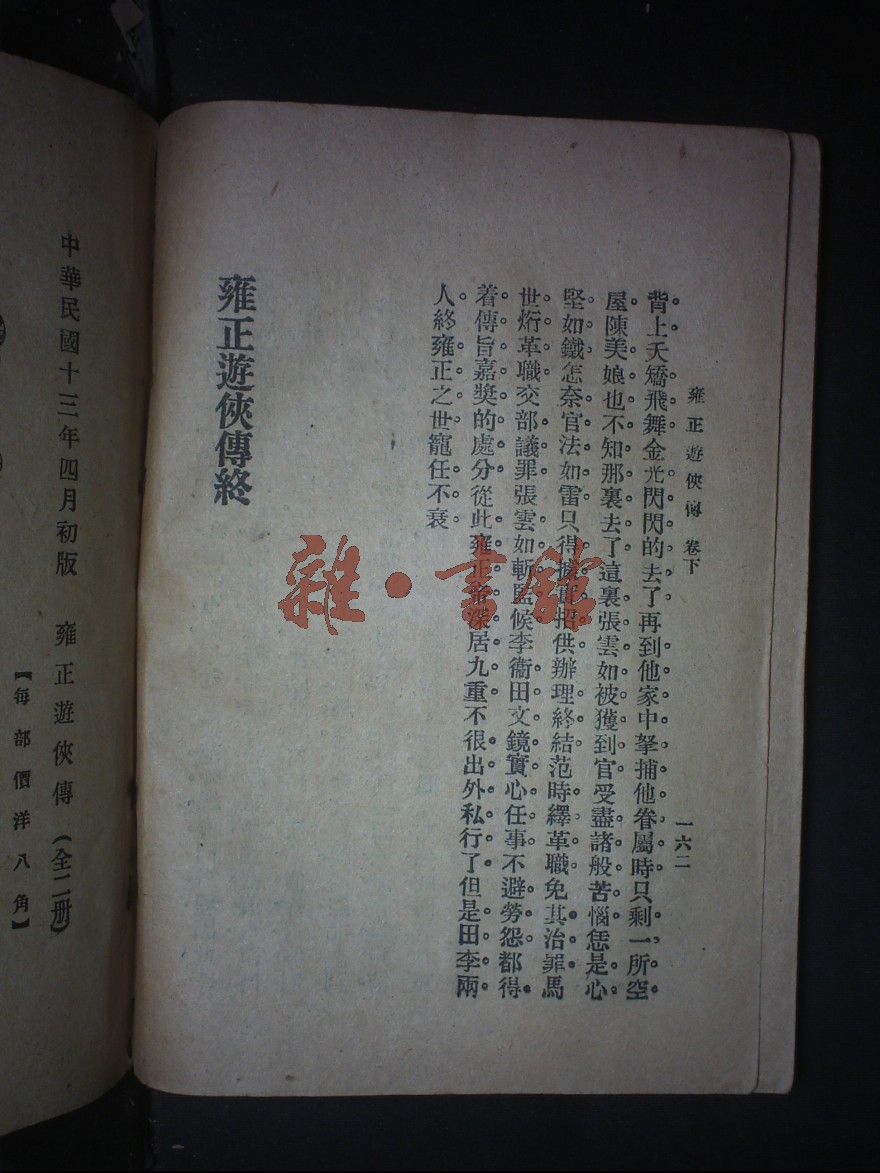 雍正遊俠傳　卷下
一六二
背上夭矯飛舞金光閃閃的去了再到他家中拏捕他眷屬時只剩一所空
屋陳美娘也不知那裏去了這裏張雲如被獲到官受盡諸般苦惱恁是心
堅如鐵怎奈官法如雷只得據實招供辦理終結范時繹革職免其治罪馬
世烆革職交部議罪張雲如斬監候李衞田文鏡實心任事不避勞怨都得
着傳旨嘉奬的處分從此雍正帝深居九重不很出外私行了但是田李兩
人終雍正之世寵任不衰。
雍正遊俠傳終
中華民國十三年四月初版
雍正遊俠傳（全二册）
【每部價洋八角】
雜·書館